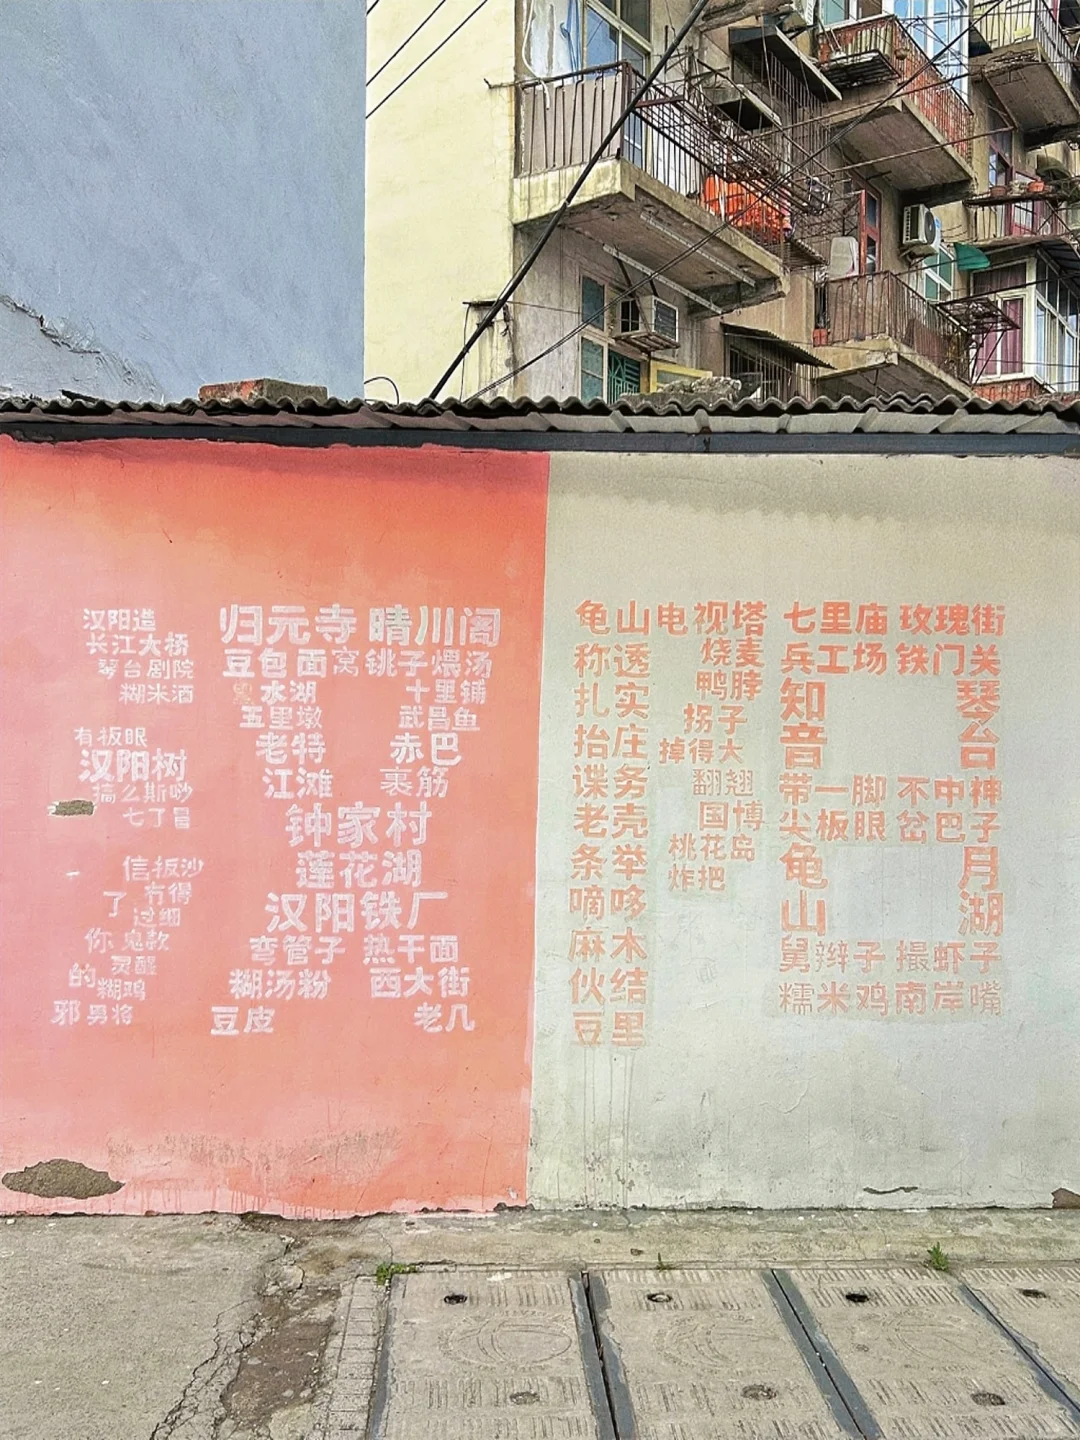 汉阳造
长江大桥
琴台剧院
糊米酒
有板眼
汉阳树
搞么斯吵
七了冒
信板沙
了 冇得
过细
你 鬼款
灵醒
的糊鸡
邪男将
归元寺 晴川阁
豆包面窝 铫子煨汤
水湖 十里铺
五里墩 武昌鱼
老特 赤巴
江滩 裹筋
钟家村
莲花湖
汉阳铁厂
弯管子 热干面
糊汤粉 西大街
豆皮 老几
龟山电视塔
称透 烧麦
扎实 鸭脖
抬庄 拐子
掉得大
谍务 翻翘
老壳 国博
条举 桃花岛
炸把
嘀哆
麻木
伙结
豆里
七里庙 玫瑰街
兵工场 铁门关
知音 琴台
带一脚 不中神
尖板眼 岔巴子
龟山 月湖
舅辫子 撮虾子
糯米鸡 南岸嘴